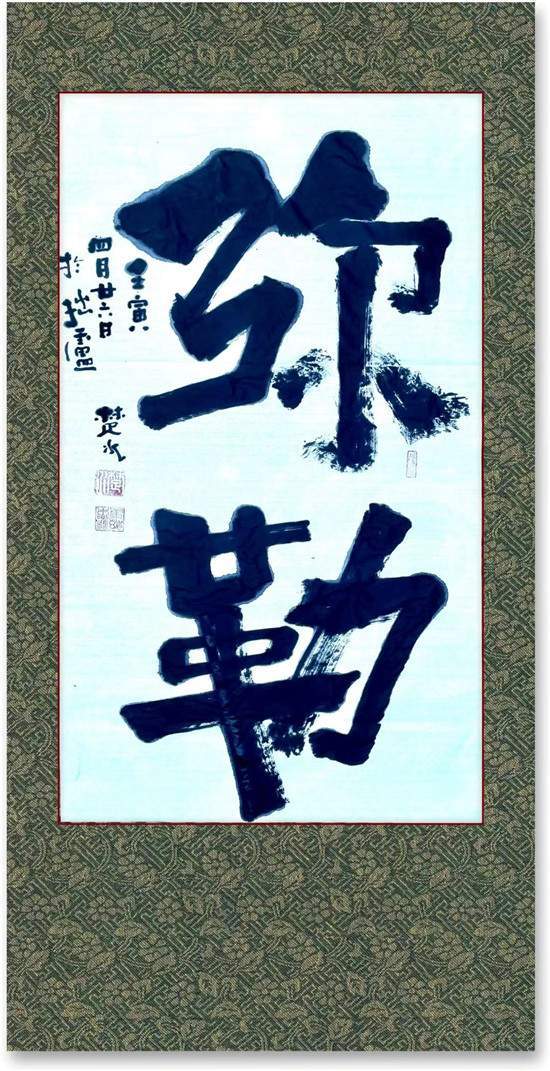 弥
勒
壬寅
四月廿六日
於
楚水